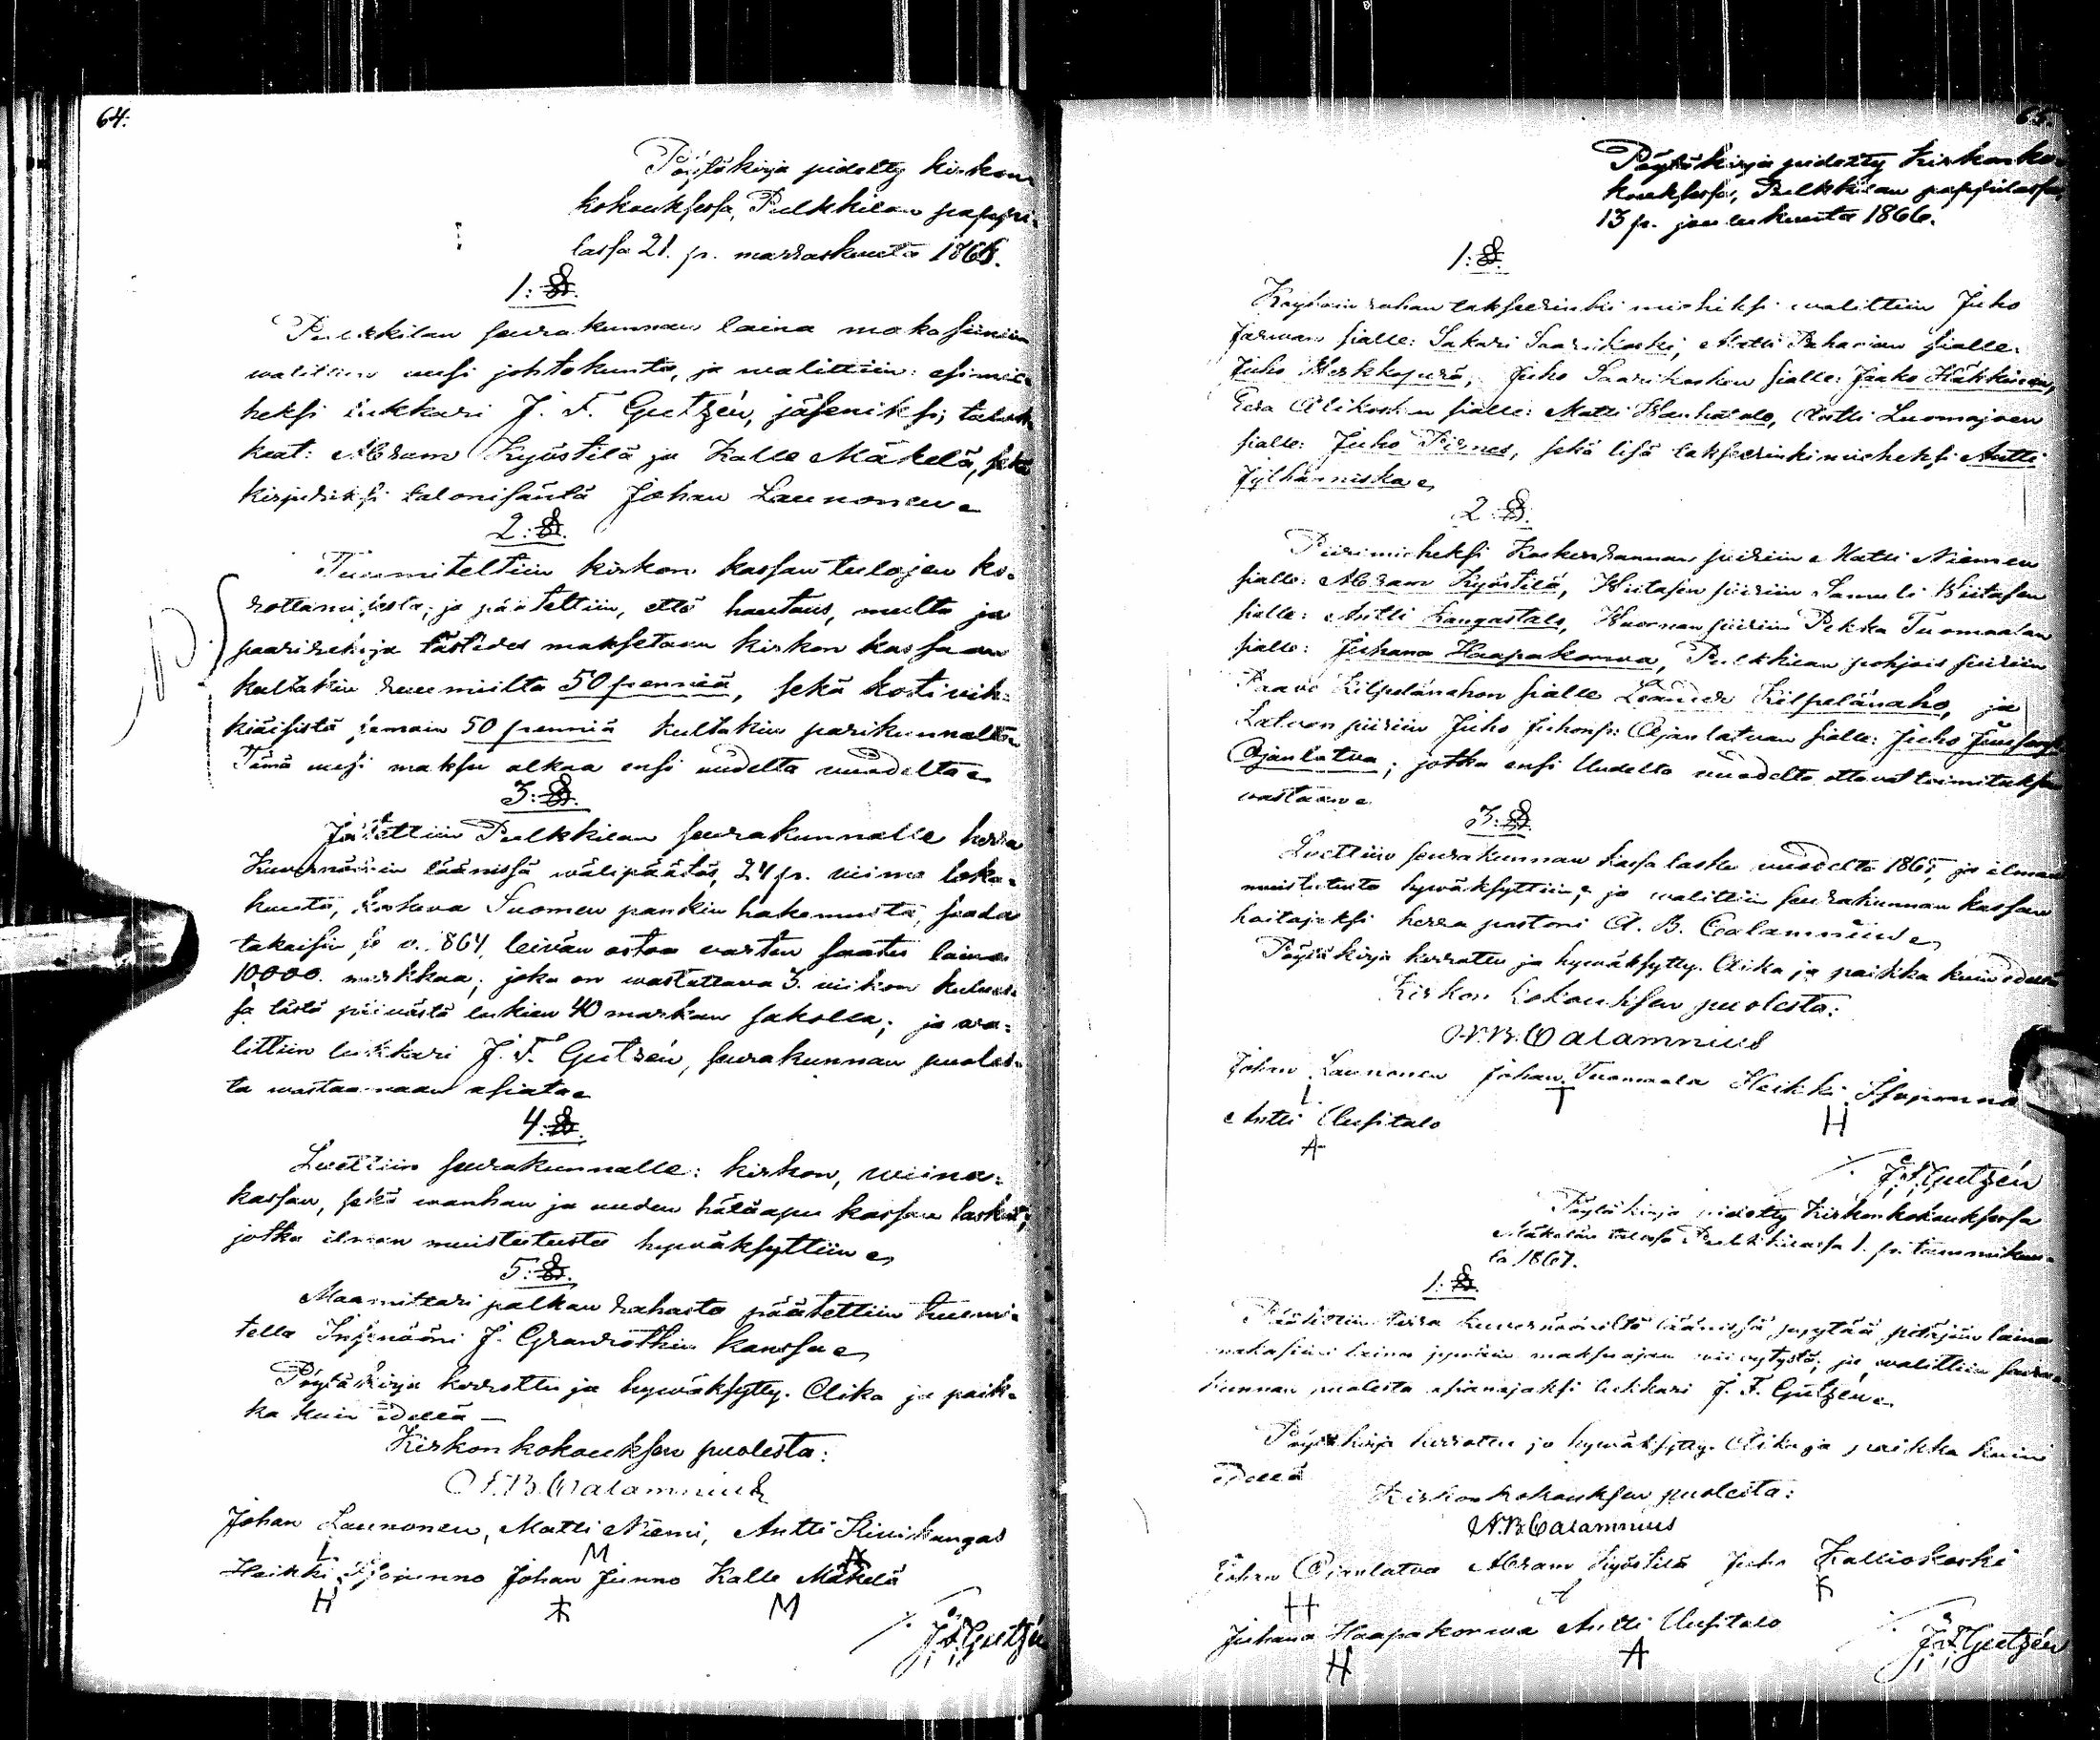 64.
Pöytäkirja pidetty kirkon-
kokouksessa, Pulkkilan pappi-
lassa 21. p. marraskuuta 1865.
1: §.
Pulkkilan seurakunnan laina makasiinin
walittiin uusi johtokunta, ja walittiin: esimie-
heksi lukkari J. F. Gutzén, jäseniksi; talok-
kaat: Abram Kyöstilä ja Kalle Mäkelä, sekä
kirjuriksi talonisäntä Johan Launonen.
2: §.
Tuumiteltiin kirkon kassan tulojen ko-
rottamisesta; ja päätettiin, että hautaus, multa ja
paarirahoja tästedes maksetaan kirkon kassaan
kultakin ruumiilta 50 penniä, sekä kotivih-
kiäisistä samain 50 penniä kultakin parikunnalta
Tämä uusi maksu alkaa ensi uudelta vuodelta.
3: §.
Julettiin Pulkkilan seurakunnalle herra
Kuvernöörin läänissä wälipäätös, 24 p. viime loka-
kuuta, koskeva Suomen pankin hakemusta, saada
takaisin se v. 1864, leivän ostoa varten saatu laina
10,000. markkaa, joka on wastattava 3. viikon kulues-
sa tästä päivästä lukien 40 markan sakolla; ja wa-
littiin lukkari J. F. Gutzén, seurakunnan puoles-
ta wastaamaan asiata.
4: §.
Luettiin seurakunnalle: kirkon, wiina-
kassan, sekä wanhan ja uuden hätäapu kassan laskut;
jotka ilman muistutusta hywäksyttiin.
5: §.
Maamittari palkan rahasta päätettiin tuumi-
tella Insinööri J. Granrothin kanssa.
Pöytäkirja korrottu ja hywäksytty. Aika ja paik-
ka kuin edellä —
Kirkonkokouksen puolesta:
A. B. Calamnius
Johan Launonen, Matti Niemi, Antti Kiviskangas
L M A
Heikki Isojunno Johan Junno Kalle Mäkelä
H M
J. F. Gutzén
65.
Pöytäkirja pidetty Kirkonko-
kouksessa, Pulkkilan pappilassa,
13 p. joulukuuta 1866.
1: §.
Köyhäin rahan takseerinki miehiksi walittiin Juho
Järwan sialle: Sakari Saarikoski, Matti Pahanian sialle:
Juho Kerkkoperä, Juho Saarikosken sialle: Jaako Häkkinen,
Eera Alikosken sialle: Matti Wanhatalo, Antti Luomajoen
sialle: Juho Pirnes, sekä lisä takseerinkimieheksi Antti
Jylhänniska.
2 §.
Piirimieheksi Koskenrannan piiriin Matti Niemen
sialle: Abram Kyöstilä, Wiitasen piiriin Samuli Wiitasen
sialle: Antti Kangastalo, Wuornan piiriin Pekka Tuomaalan
sialle: Juhana Haapakorwa, Pulkkilan pohjois piiriin
Paavo Kilpelänahon sialle Leander Kilpelänaho, ja
Latwan piiriin Juho Juhonp: Ojanlatwan sialle: Juho
Ojanlatva; jotka ensi Uudelta vuodelta ottavat toimituksen
wastaan.
3: §.
Luettiin seurakunnan kassa lasku vuodelta 1865, ja ilman
muistutusta hywäksyttiin; ja walittiin seurakunnan kassan
hoitajaksi herra pastori A. B. Calamnius.
Pöytäkirja korrottu ja hywäksytty. Aika ja paikka kuin edellä
Kirkon kokouksen puolesta:
A. B. Calamnius
Johan Launonen Johan Tuomaala Heikki Isojunno
L T H
Antti Uusitalo
A
J. F. Gutzén
Pöytäkirja pidetty Kirkonkokouksessa
Mäkelän talossa Pulkkilassa 1. p. tammikuu-
ta 1867.
1: §.
Päätettiin herra kuvernööriltä läänissä pyytää pitäjän laina
makasiini laina jywäin maksuajan viivytystä; ja walittiin seura-
kunnan puolesta asianajaksi lukkari J. F. Gutzén.
Pöytäkirja korrottu ja hywäksytty. Aika ja paikka kuin
edellä
Kirkonkokouksen puolesta:
A. B. Calamnius
Johan Ojanlatva Abram Kyöstilä Juho Kallioskoski
H A K
Juhana Haapakorwa Antti Uusitalo
H A
J. F. Gutzén